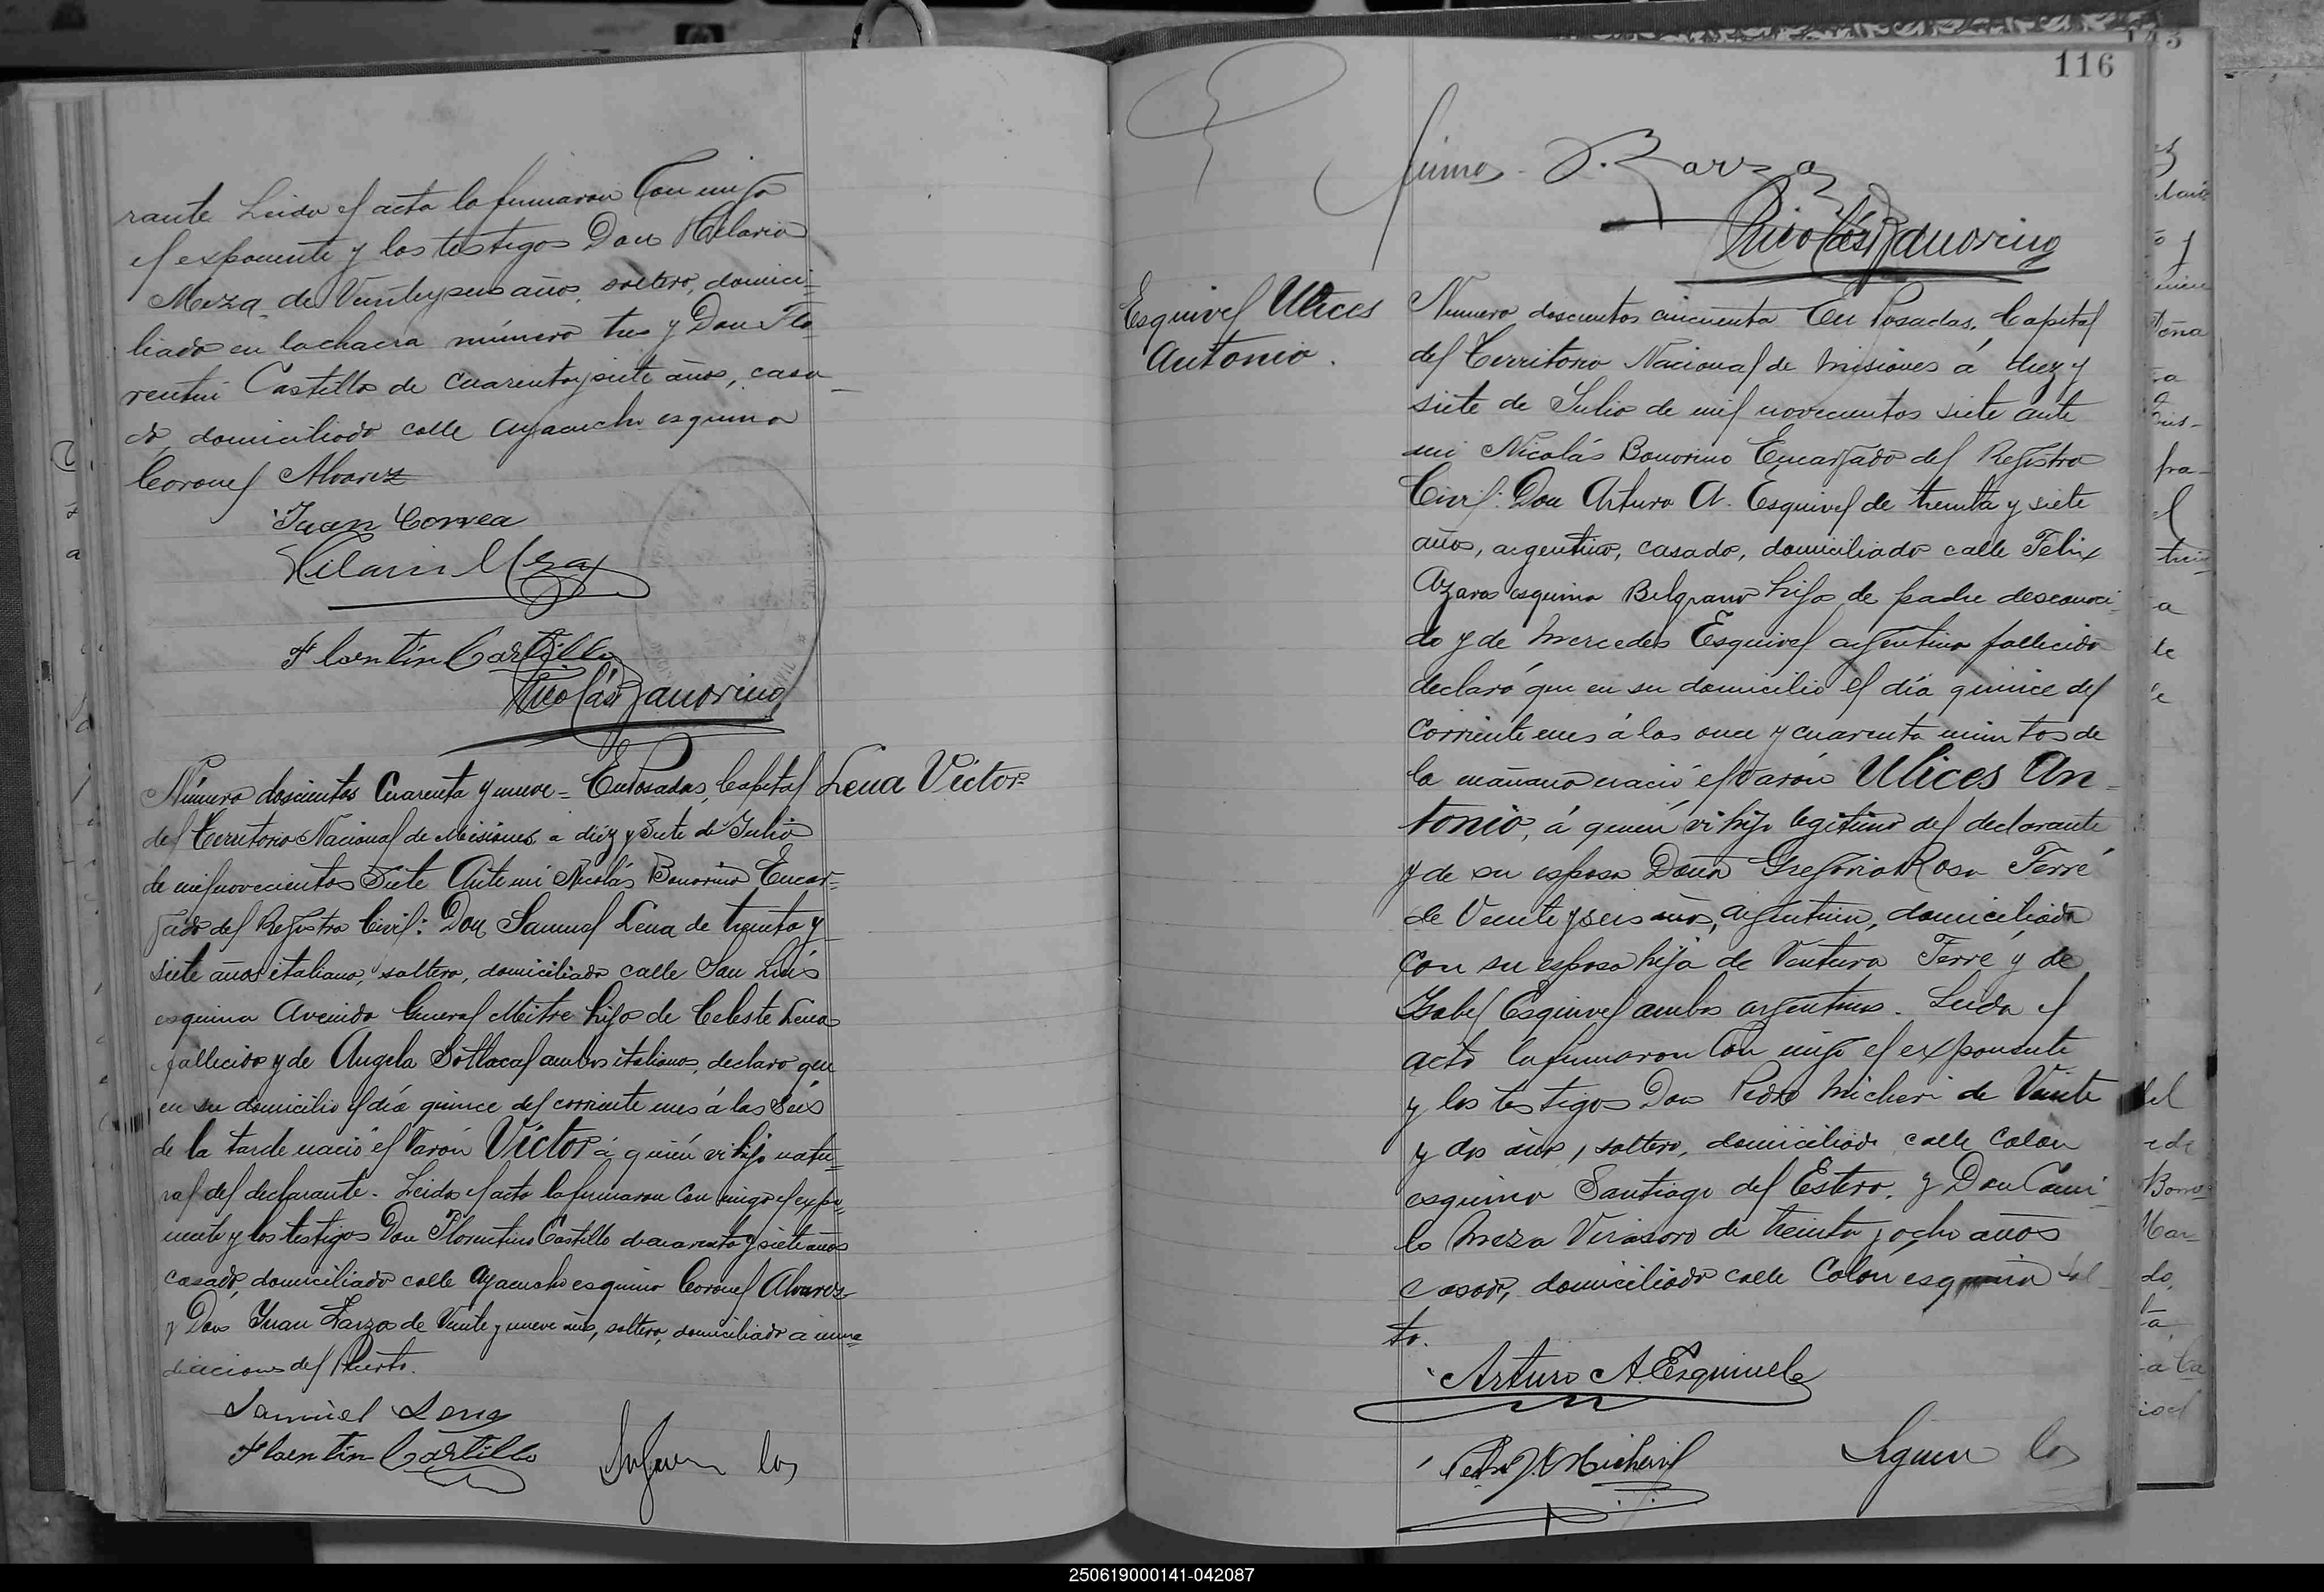 rante. Leida el acta la firmaron con migo
el exponente y los testigos Don Hilario
Meza, de veinteyseis años, soltero, domici-
liado en la chacra número tres y Don Flo-
rentin Castillo de cuarentaysiete años, casa-
do, domiciliado calle Ayacucho esquina
Coronel Alvarez
Juan Correa
Hilario Meza
Florentin Castillo
Nicolás Bonorino
Número doscientos cuarenta y nueve = En Posadas, Capital
Lena Victor
del Territorio Nacional de Misiones, a diez y siete de Julio
de mil novecientos siete Ante mi Nicolás Bonorino Encar-
gado del Registro Civil: Don Samuel Lena de treinta y
siete años italiano, soltero, domiciliado calle San Luis
esquina Avenida General Mitre hijo de Celeste Lena
fallecido y de Angela ambos italianos, declaro que
en su domicilio el día quince del corriente mes á las seis
de la tarde nació el varón Victor á quién vi hijo natu-
ral del declarante. Leida el acta la firmaron con migo el expo-
nente y los testigos Don Florentino Castillo de cuarenta y siete años
casado, domiciliado calle Ayacucho esquina Coronel Alvarez
y Don Juan Zarza de veinte y nueve años, soltero, domiciliado a inme-
diaciones del Puerto.
Samuel Lena
Florentin Castillo
Siguen las
116
firmas - J. Zarza
Nicolás Bonorino
Esquivel Ulices
Antonio.
Numero doscientos cincuenta En Posadas, Capital
del Territorio Nacional de Misiones á diez y
siete de Julio de mil novecientos siete ante
mi Nicolás Bonorino Encargado del Registro
Civil: Don Arturo A. Esquivel de treinta y siete
años, argentino, casado, domiciliado calle Felix
Azara esquina Belgrano hijo de padre desconoci-
do y de Mercedes Esquivel argentina fallecida
declaró que en su domicilio el día quince del
corriente mes á las once y cuarenta minutos de
la mañana nació el varón Ulices An-
tonio, á quién vi hijo legitimo del declarante
y de su esposa Doña Gregoria Rosa Ferré
de veinte y seis años, argentina, domiciliada
con su esposo hija de Ventura Ferré y de
Isabel Esquivel ambos argentinos. Leida el
acta la firmaron con migo el exponente
y los testigos Don Pedro Micheri de veinte
y dos años, soltero, domiciliado calle Colon
esquina Santiago del Estero, y Don Cami-
lo Meza Virasoro de treinta y ocho años
casado, domiciliado calle Colón esquina Sal-
ta.
Arturo A. Esquivel
Pedro J. Micheri
Siguen las
250619000141-042087